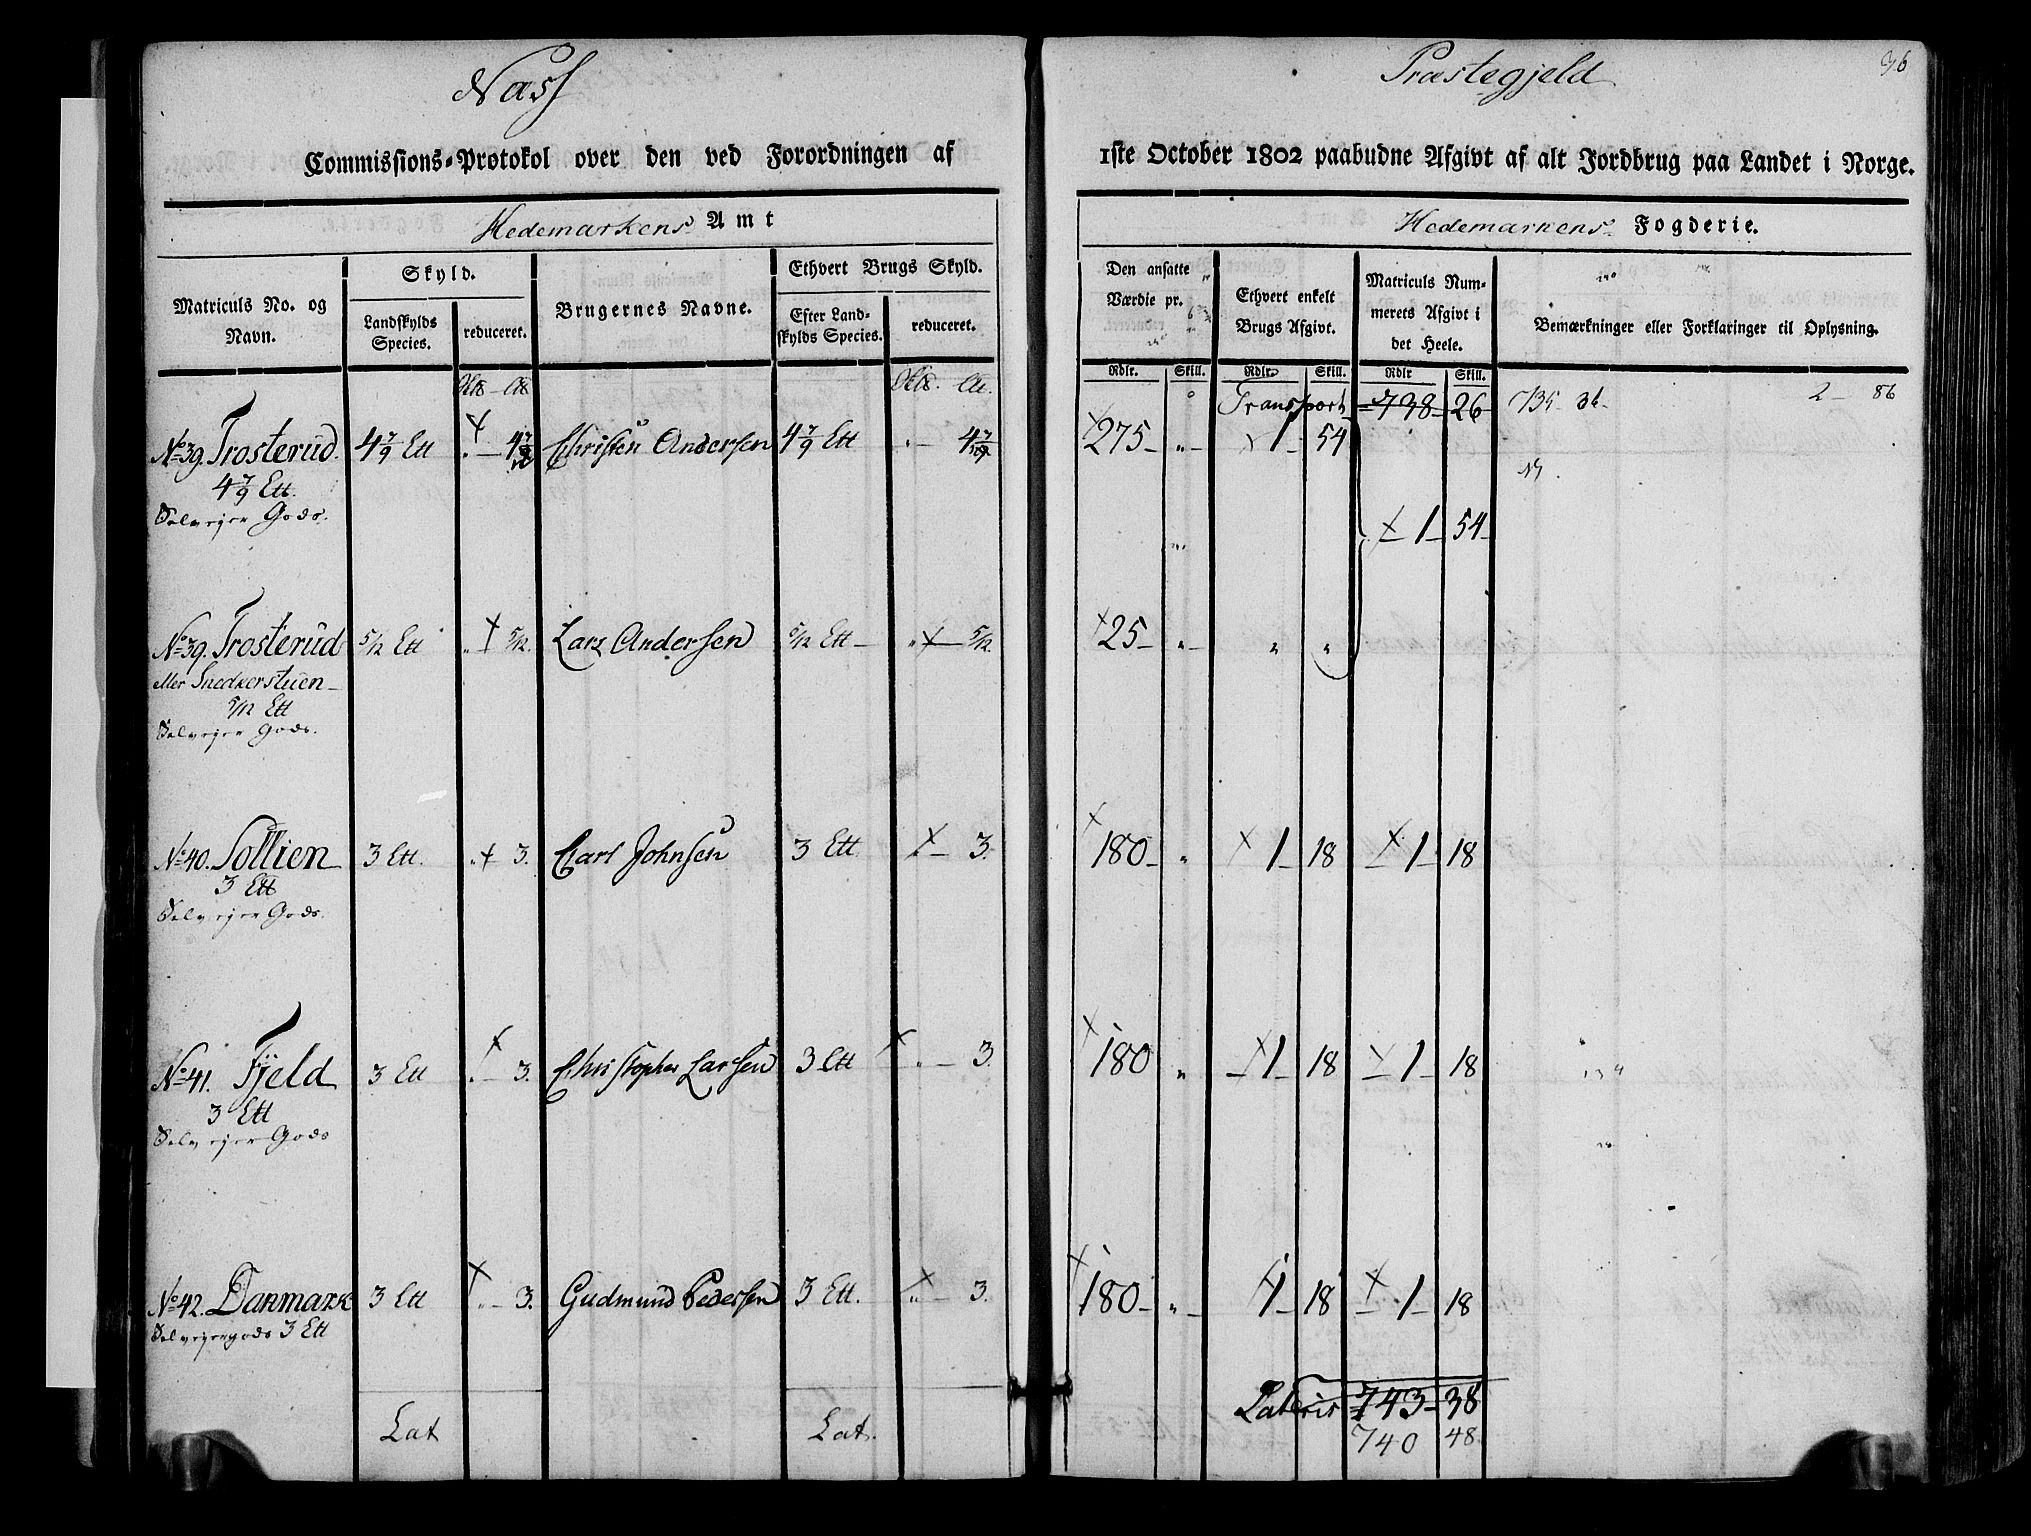 Næss Præstegjeld 96
Commissions-Protokol over den ved Forordningen af 1ste October 1802 paabudne Afgivt af alt Jordbrug paa Landet i Norge.
Hedemarkens Amt Hedemarkens Fogderie.
Matriculs No. og Navn. Skyld. Landskylds Species. reduceret. Brugernes Navne. Ethvert Brugs Skyld. Efter Landskylds Species. reduceret. Den ansatte Værdie pr. Ethvert enkelt Brugs Afgivt. Matriculs Nummerets Afgivt i det Heele. Bemærkninger eller Forklaringer til Oplysning.
Rdlr. Skill. Rdlr. Skill. Rdlr Skill.
Transport 738 26 735 36 2 86
No 39. Trosterud 4 7/9 Ett " 4 7/9 Christen Andersen 4 7/9 Ett " 4 7/9 275 " 1 54
4 7/9 Ett.
Selvejer Gods.
1 54
No 39. Trosterud 5/12 Ett " 5/12. Lars Andersen 5/12 Ett " 5/12. 25 " " "
eller Snedkerstuen
5/12 Ett
Selvejer Gods.
No 40. Sollien 3 Ett. " 3. Carl Johnsen 3 Ett 3. 180 " 1 18 1 18
3 Ett
Selvejer Gods.
No 41. Fjeld 3 Ett " 3. Christopher Larsen 3 Ett " 3. 180 " 1 18 1 18
3 Ett
Selvejer Gods
No 42. Danmark 3 Ett " 3. Gudmund Pedersen 3 Ett. " 3. 180 " 1 18 1 18
Selvejergods 3 Ett
Lat Lat. Lateris 743 38
740 48